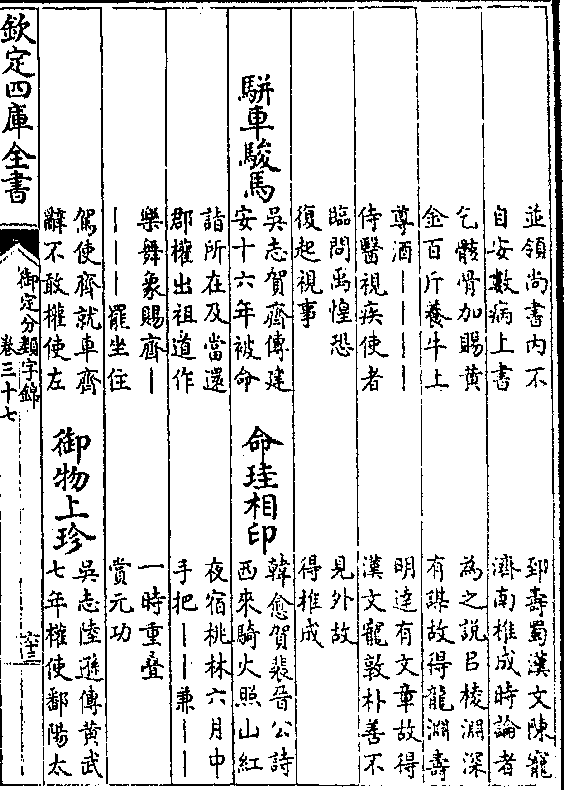 並領尚書内不
自安數病上書
乞骸骨加賜黄
金百斤養牛上
尊酒丨丨丨丨
侍醫視疾使者
臨問禹惶恐
復起視事
駢車駿馬
吳志賀齊傳建
安十六年被命
詣所在及當還
郡權出祖道作
樂舞象賜齊丨
丨丨丨罷坐住
駕使齊就車齊
辭不敢權使左
郅壽蜀漢文陳寵
濟南椎成時論者
為之説吕稜淵深
有謀故得龍淵壽
明逹有文章故得
漢文寵敦朴善不
見外故
得椎成
命珪相印
韓愈賀裴晉公詩
西來騎火照山紅
夜宿桃林六月中
手把丨丨兼丨丨
一時重叠
賞元功
御物上珍
吳志陸遜傳黄武
七年權使鄱陽太
欽定四庫全書
御定分類字錦
卷三十七
六十三